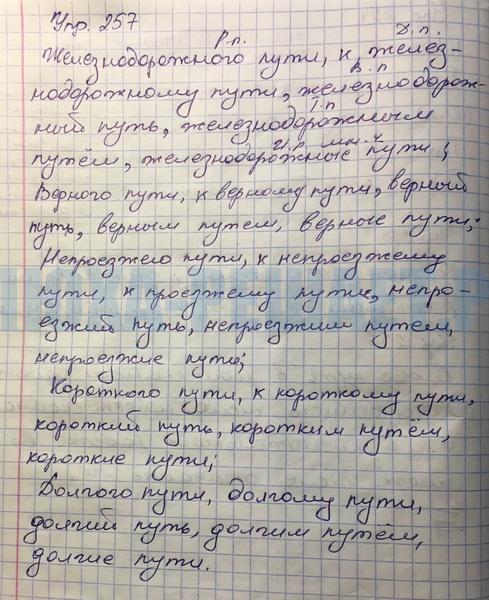 Упр. 257
Р.п. Д.п.
Железнодорожного пути, к желез-
В.п
нодорожному пути, железнодорож-
Т.п
ный путь, железнодорожным
И.п. мн.ч
путём, железнодорожные пути;
Верного пути, к верному пути, верный
путь, верным путем, верные пути;
Непроезжего пути, к непроезжему
пути, к проезжему пути, непро-
езжий путь, непроезжим путем,
непроезжие пути;
Короткого пути, к короткому пути,
короткий путь, коротким путём,
короткие пути;
Долгого пути, долгому пути,
долгий путь, долгим путём,
долгие пути.